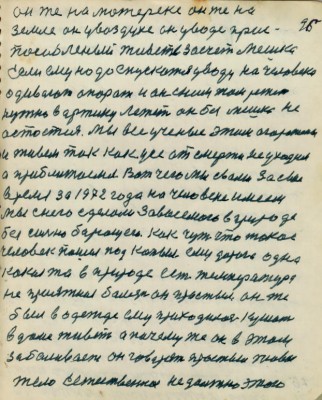 он же на материке он же на 95
земле он у воздухе он у воде прис-
пособленый живет за счет мешка
если ему надо спускатся у воду на человека
одивают апорат и он
нужно в артику летит он без мешка не
астоется. Мы все ученые этим
и живем так как усе от смерти не уходим
а приближаемся. Вот чего мы сваим За свое
время за 1972 года на человеке имеем
Мы с него сделали Зависемого в природе
без силно барющего. Как чуть что такое
человек попал под ему дорога одна
Какая то в природе есть температура
не приятная боится он простыл он же
был в одежде ему приходилося кушать
в доме живет а почему же он в этом
заболивает он говорят простыл
тело естественное не должно этого